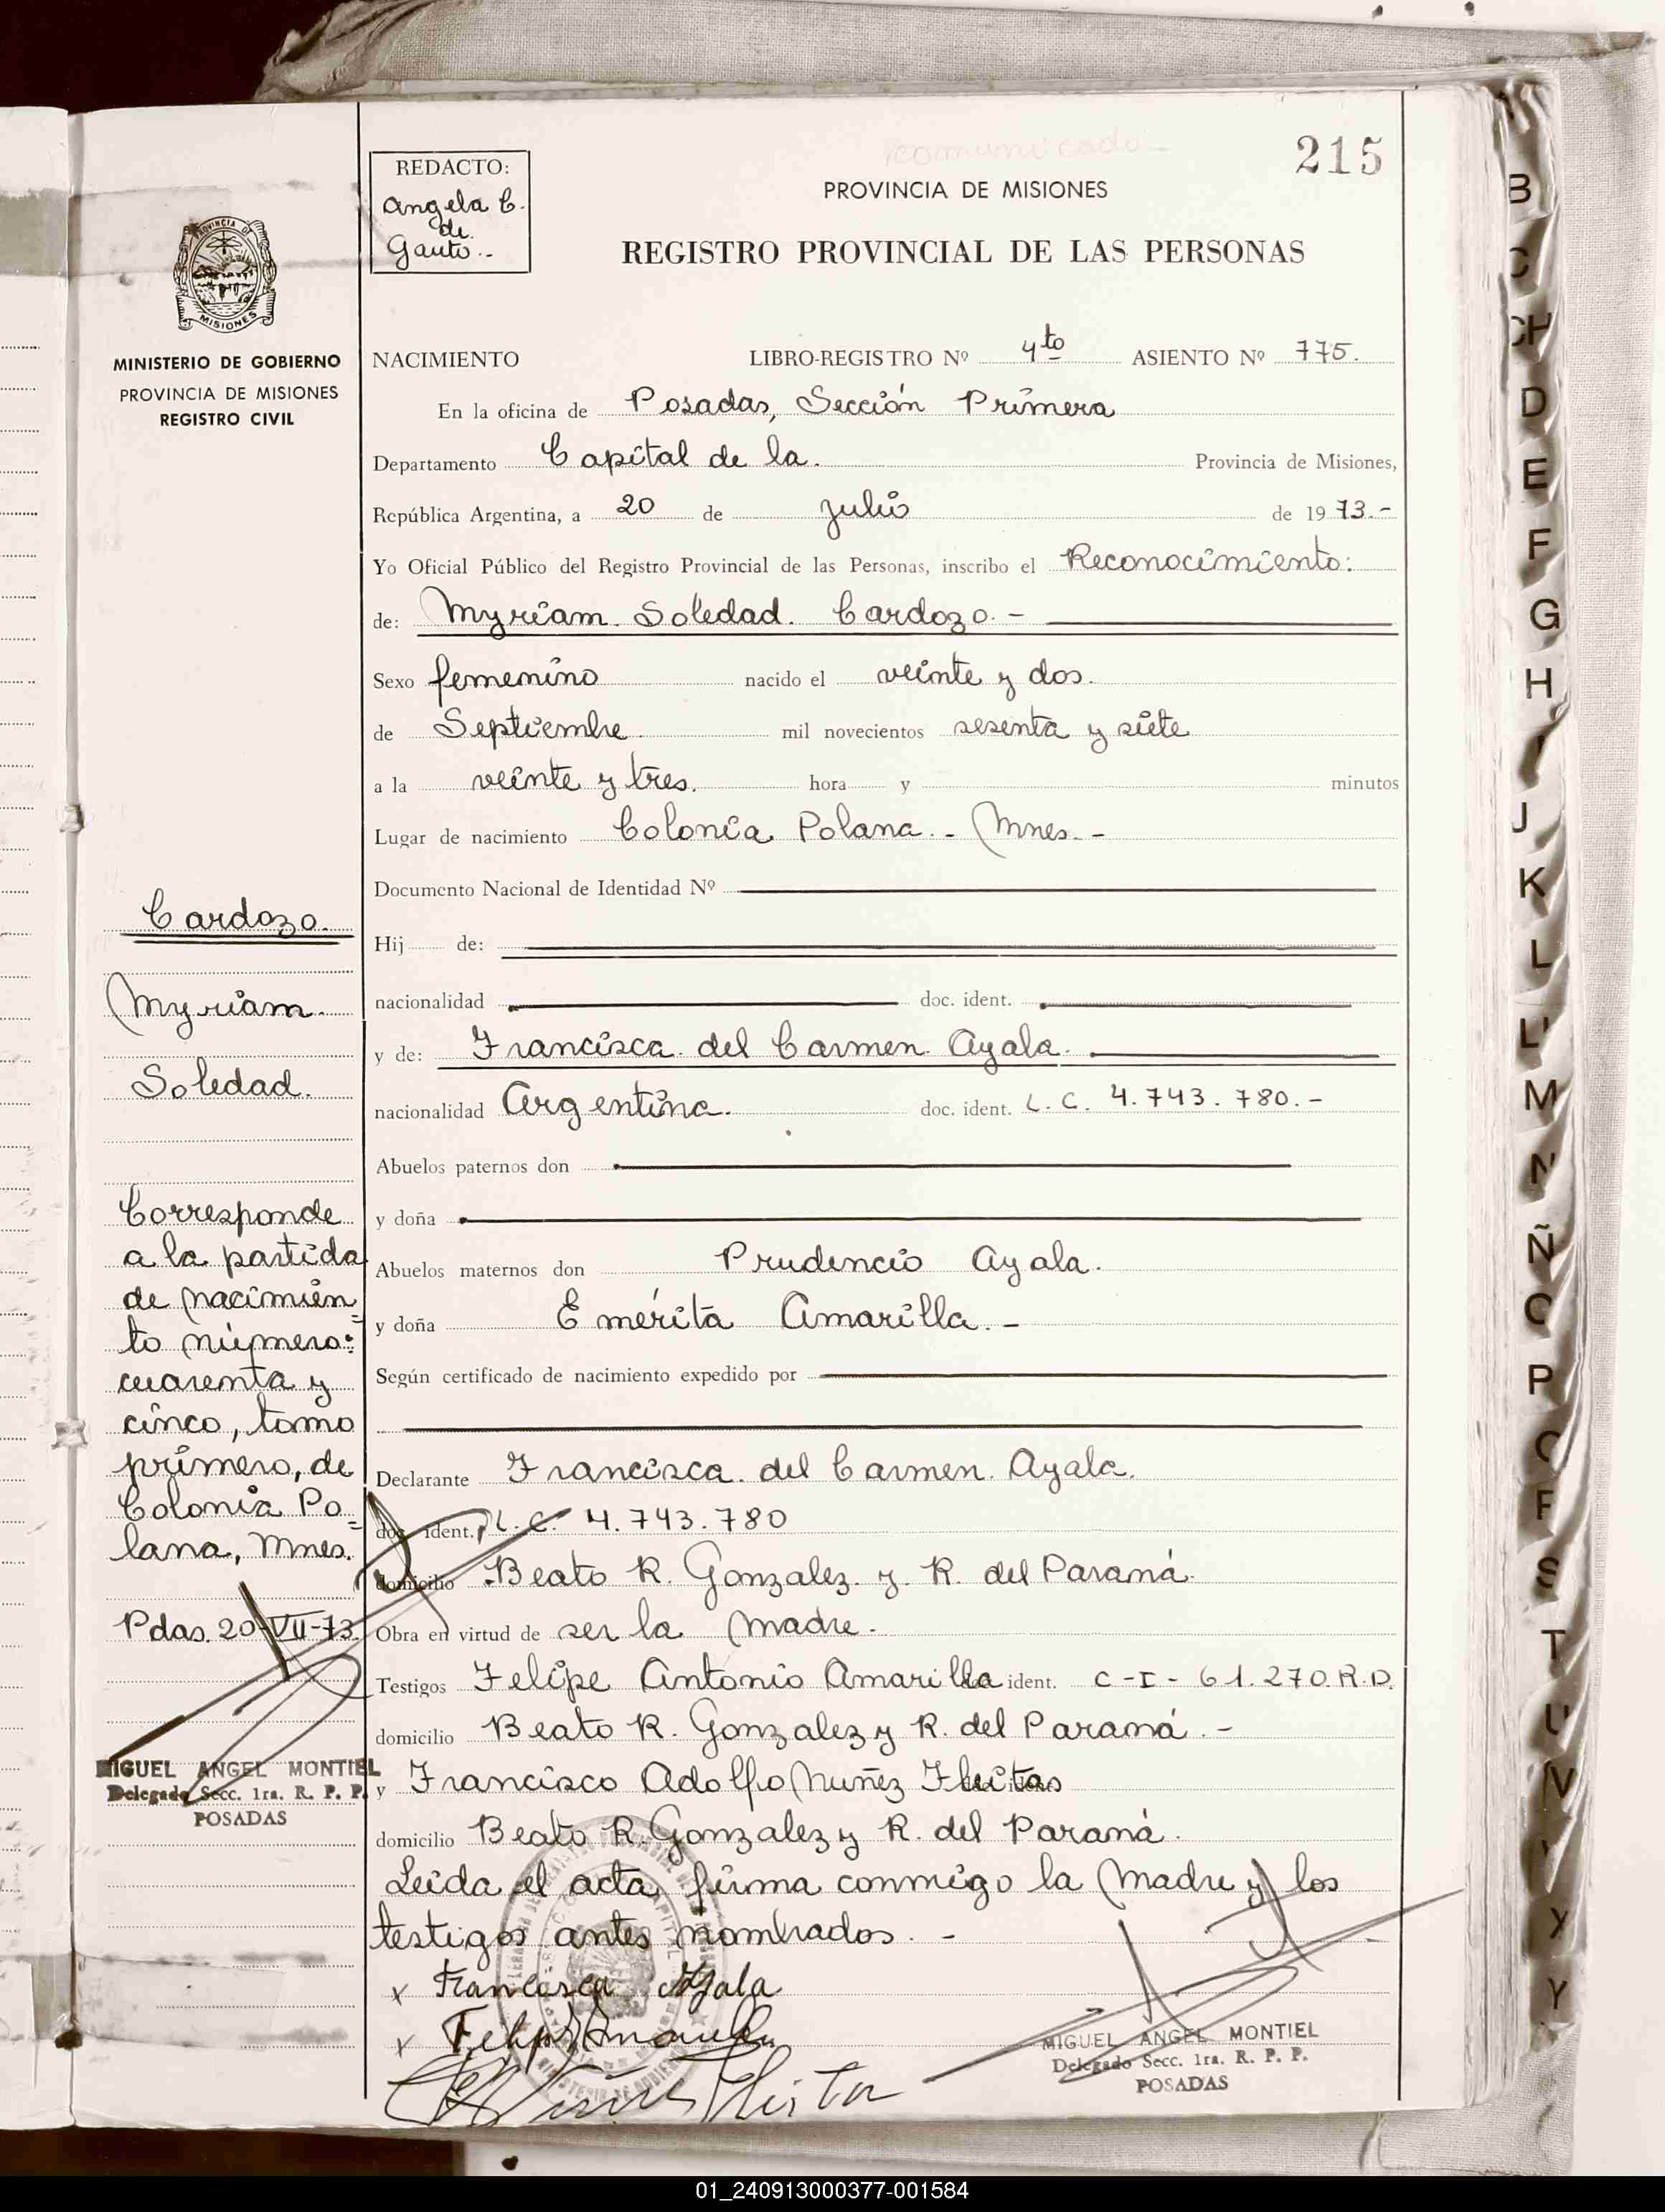 comunicado -
215
REDACTO:
Angela C.
de
Gauto.-
PROVINCIA DE MISIONES
REGISTRO PROVINCIAL DE LAS PERSONAS
PROVINCIA DE
MISIONES
MINISTERIO DE GOBIERNO
PROVINCIA DE MISIONES
REGISTRO CIVIL
NACIMIENTO LIBRO-REGISTRO Nº 4to ASIENTO Nº 775.
En la oficina de Posadas, Sección Primera
Departamento Capital de la. Provincia de Misiones,
República Argentina, a 20 de Julio de 1973.-
Yo Oficial Público del Registro Provincial de las Personas, inscribo el Reconocimiento:
de: Myriam Soledad. Cardozo. -
Sexo femenino nacido el veinte y dos.
de Septiembre mil novecientos sesenta y siete
a la veinte y tres. hora y minutos
Lugar de nacimiento Colonia Polana. - Mnes. -
Documento Nacional de Identidad Nº
Hij de:
nacionalidad doc. ident.
y de: Francisca del Carmen Ayala.
nacionalidad Argentina. doc. ident. L. C. 4.743.780. -
Abuelos paternos don
y doña
Abuelos maternos don Prudencio Ayala.
y doña Emérita Amarilla. -
Según certificado de nacimiento expedido por
Declarante Francisca del Carmen Ayala.
doc. ident. L. C. 4.743.780
domicilio Beato R. Gonzalez y R. del Paraná.
Obra en virtud de ser la Madre.
Testigos Felipe Antonio Amarilla ident. C-I- 61.270 R.P.
domicilio Beato R. Gonzalez y R. del Paraná. -
y Francisco Adolfo Nuñez Fleitas
domicilio Beato R. Gonzalez y R. del Paraná.
Leida el acta, firma conmigo la Madre y los
testigos antes nombrados. -
x Francisca Ayala
x Felipe Amarilla
MIGUEL ANGEL MONTIEL
Delegado Secc. 1ra. R. P. P.
POSADAS
Cardozo.
Myriam.
Soledad.
Corresponde
a la partida
de nacimien
to número:
cuarenta y
cinco, tomo
primero, de
Colonia Po
lana, Mnes.
Pdas. 20-VII-73.
MIGUEL ANGEL MONTIEL
Delegado Secc. 1ra. R. P. P.
POSADAS
B
C
CH
D
E
F
G
H
I
J
K
L
LL
M
N
Ñ
O
P
Q
R
S
T
U
V
X
Y
01_240913000377-001584